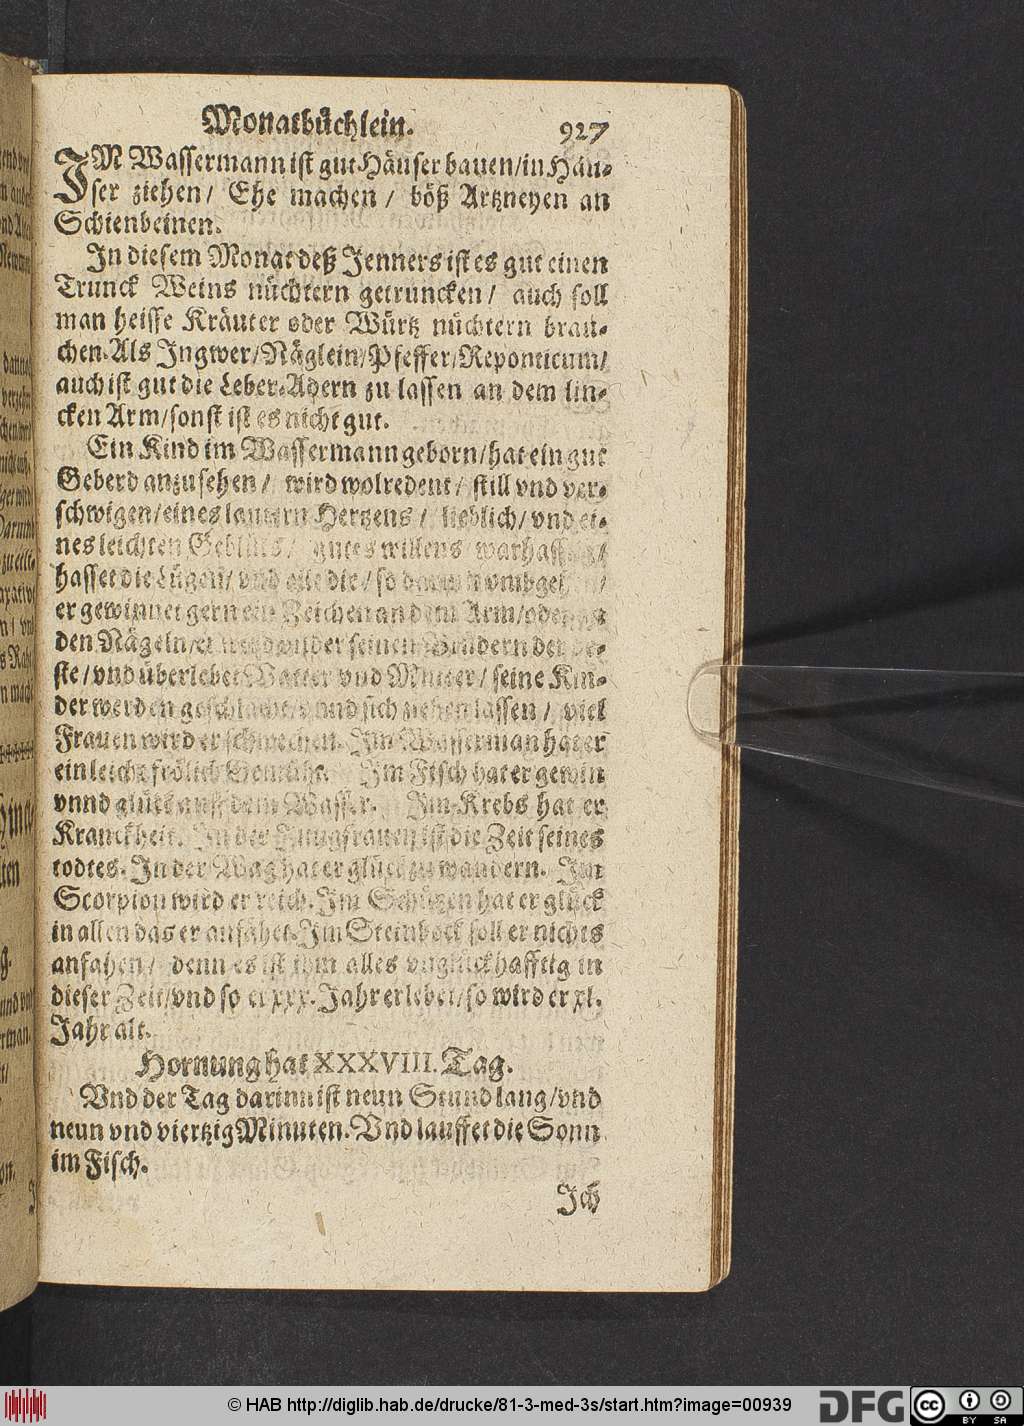 Monatbüchlein. 927
IM Wassermann ist gut Häuser bauen/in Häu-
ser ziehen/ Ehe machen/ böß Artzneyen an
Schienbeinen.
In diesem Monat deß Jenners ist es gut einen
Trunck Weins nüchtern getruncken/ auch soll
man heisse Kräuter oder Würtz nüchtern brau-
chen. Als Ingwer/Näglein/Pfeffer/Reponticum/
auch ist gut die Leber-Adern zu lassen an dem lin-
cken Arm/sonst ist es nicht gut.
Ein Kind im Wassermann geborn/hat ein gut
Geberd anzusehen/ wird wolredent/ still vnd ver-
schwigen/eines lautern Hertzens/ lieblich/vnd ei-
nes leichten Geblüts/ gutes willens/warhafftig/
hasset die Lügen/vnd alle die/so darmit vmbgehen/
er gewinnet gern ein Zeichen an dem Arm/oder an
den Nägeln/er wird vnder seinen Brüdern der be-
ste/vnd überlebet Vatter vnd Mutter/seine Kin-
der werden geschlacht/vnnd sich ziehen lassen/ viel
Frauen wird er schwechen. Im Wasserman hat er
ein leicht frölich Gemüht. Im Fisch hat er gewin
vnnd glück auff dem Wasser. Im Krebs hat er
Kranckheit. In der Jungfrauen ist die Zeit seines
todtes. In der Wag hat er glück zu wandern. Im
Scorpion wird er reich. Im Schützen hat er glück
in allen das er anfahet. Im Steinbock soll er nichts
anfahen/ denn es ist ihm alles vnglückhafftig in
dieser Zeit/vnd so er xxx. Jahr erlebet/so wird er xl.
Jahr alt.
Hornung hat XXXVIII. Tag.
Vnd der Tag darinn ist neun Stund lang/vnd
neun vnd viertzig Minuten. Vnd lauffet die Sonn
im Fisch.
Ich
© HAB http://diglib.hab.de/drucke/81-3-med-3s/start.htm?image=00939
DFG
cc BY SA